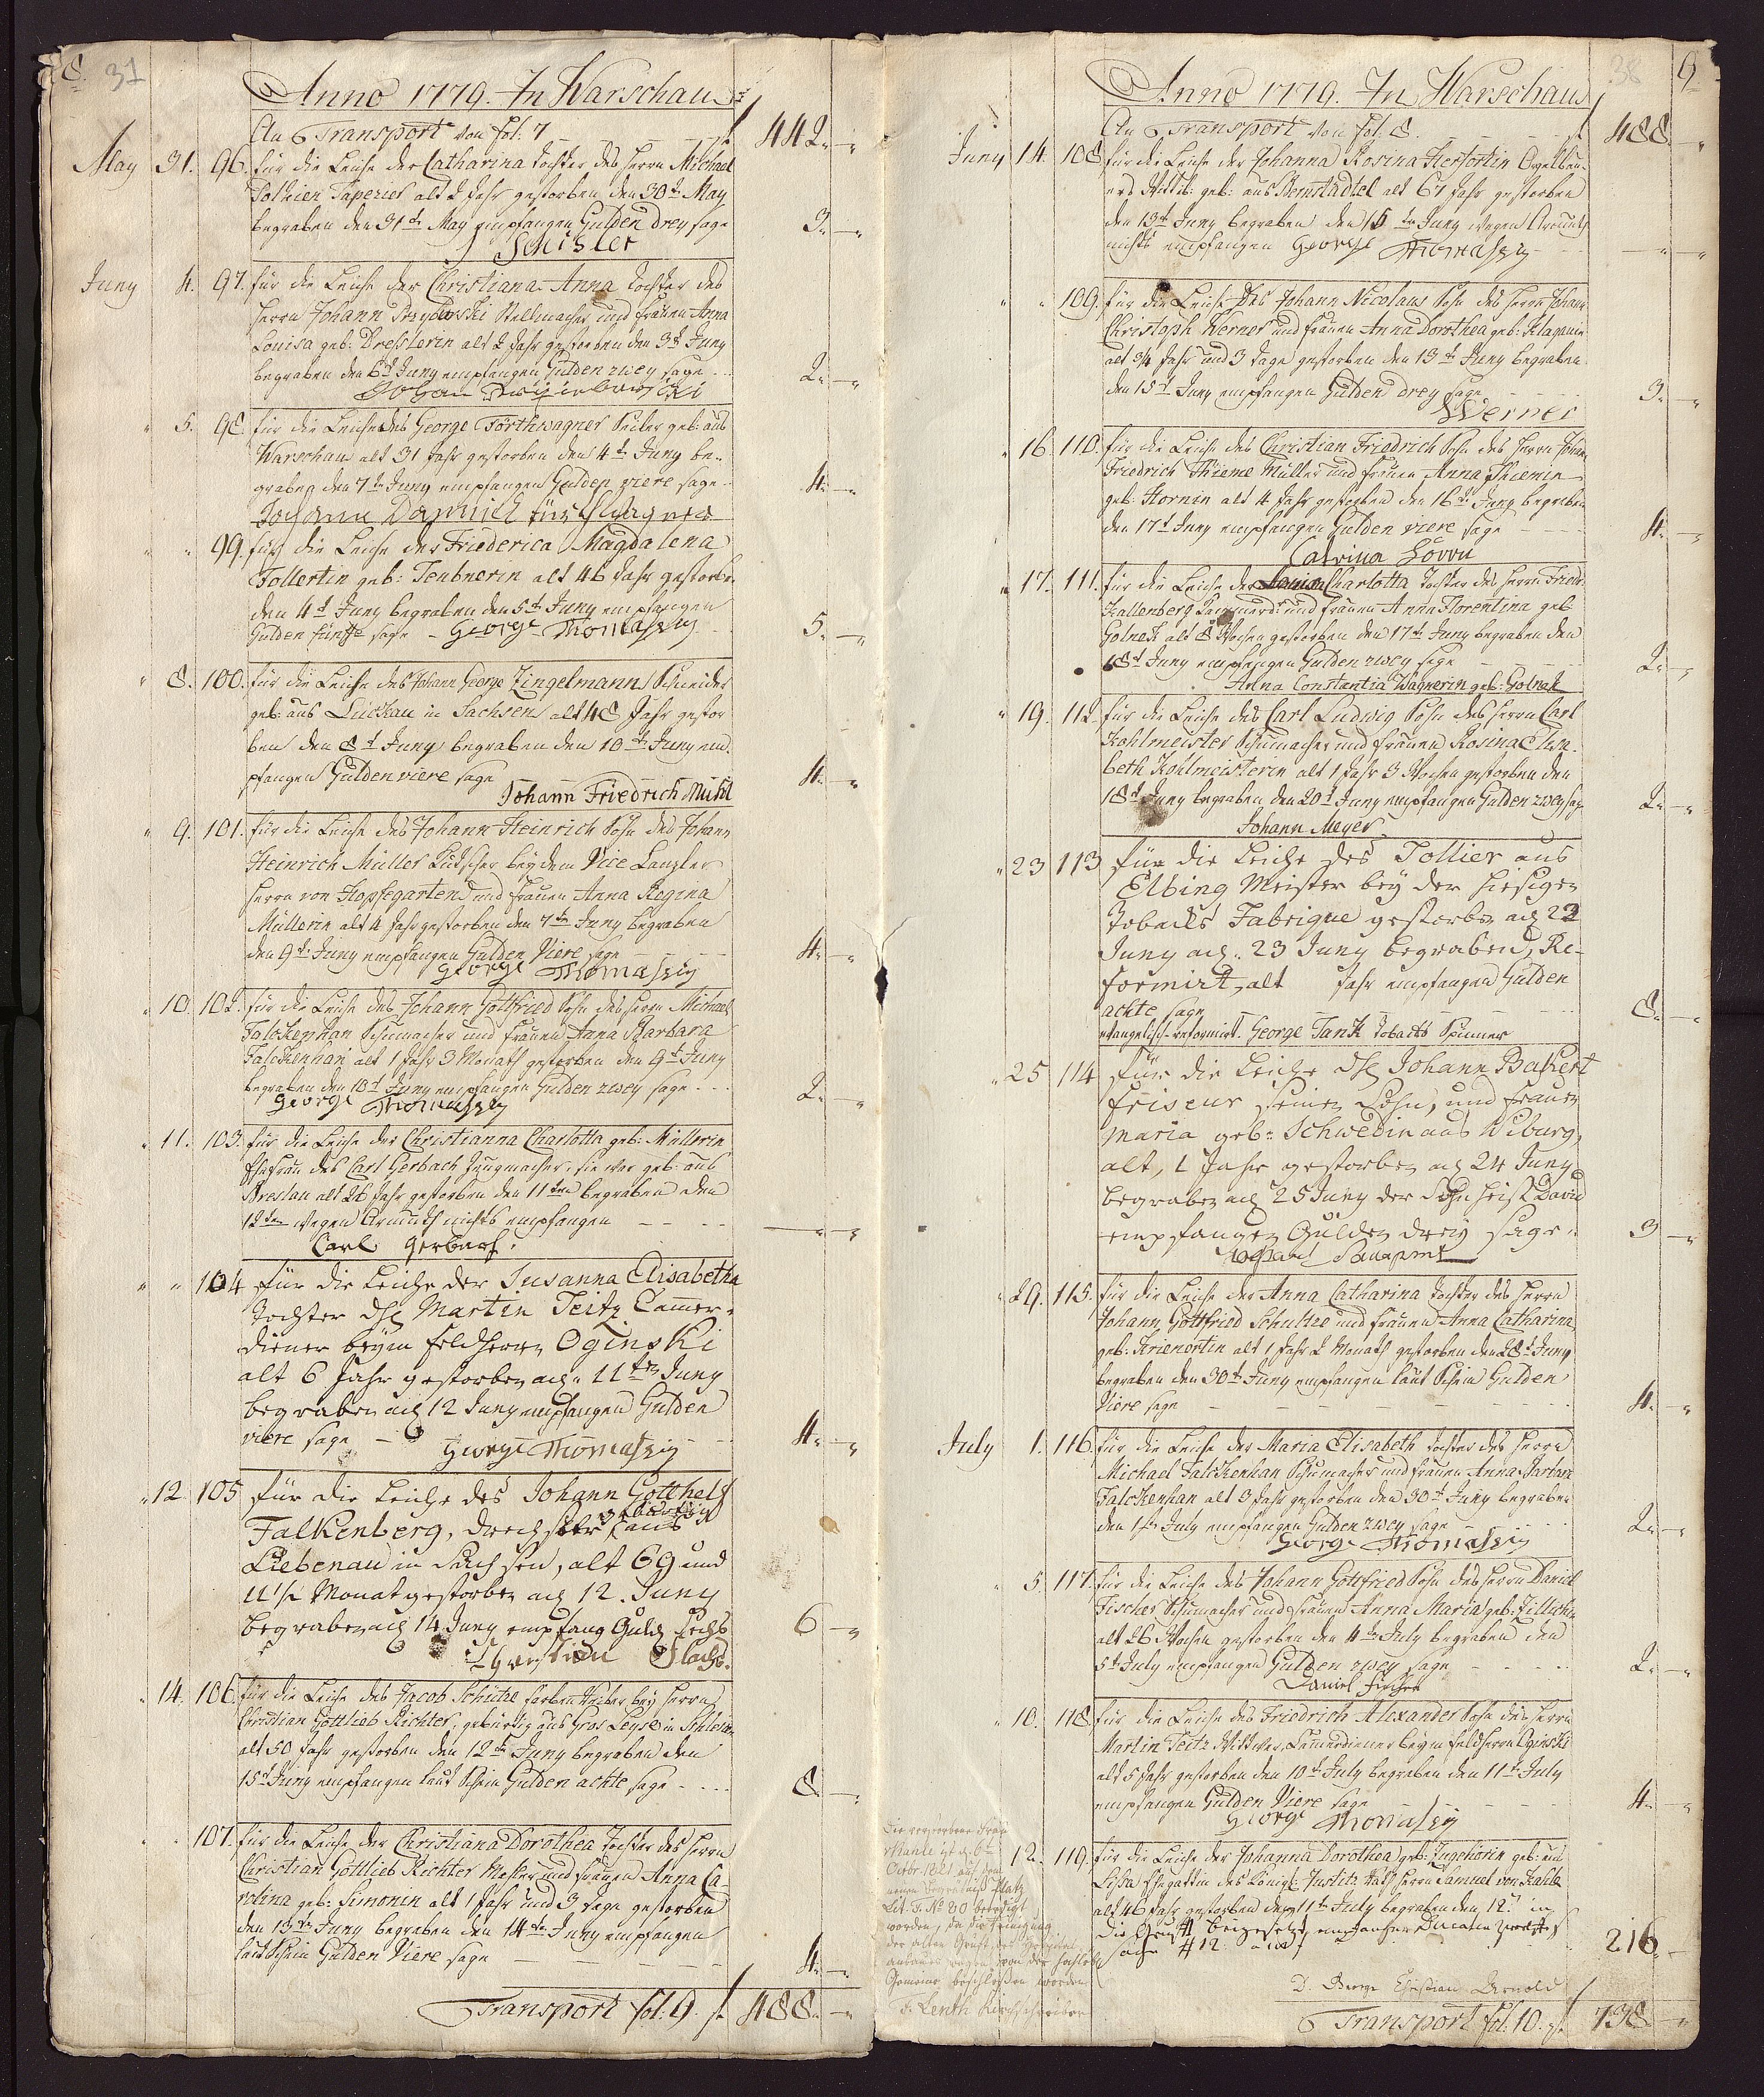 8. 31
Anno 1779. In Warschau
An Transport von fol: 7 f. 442.
May 31. 96. für die Leiche der Catharina Tochter des Herrn Michael
Tapezier alt 2 Jahr gestorben den 30t May
begraben den 31t May empfangen Gulden drey sage 3.
Schisler
Juny 4. 97. für die Leiche der Christiana Anna Tochter des
Herrn Johann Stellmacher und Frauen Anna
Louisa geb: Dresslerin alt 2 Jahr gestorben den 3t Juny
begraben den 6t Juny empfangen Gulden zwey sage 2.
Johan
" 5. 98. für die Leiche des George Förthwagner Seiler geb: aus
Warschau alt 31 Jahr gestorben den 4t Juny be-
graben den 7t Juny empfangen Gulden viere sage 4.
" " 99. für die Leiche der Friederica Magdalena
Tollertin geb: Teubnerin alt 46 Jahr gestorb.
den 4t Juny begraben den 5t Juny empfangen
Gulden fünffe sage George Thomaszig 5.
" 8. 100. für die Leiche des Johann George Zingelmann Schneider
geb: aus Luckau in Sachsen alt 48 Jahr gestor
ben den 8t Juny begraben den 10t Juny em-
pfangen Gulden viere sage 4.
Johann Friedrich Mühl
" 9. 101. für die Leiche des Johann Heinrich Sohn des Johann
Heinrich Müller Kutscher bey dem Vice Canzler
Herrn von Hopfegarten und Frauen Anna Regina
Müllerin alt 4 Jahr gestorben den 7t Juny begraben
den 9t Juny empfangen Gulden Viere sage 4.
George Thomaszig
" 10. 102. für die Leiche des Johann Gottfried Sohn des Herrn Michael
Falckenhan Schumacher und Frauen Anna Barbara
Falckenhan alt 1 Jahr 3 Monath gestorben den 9t Juny
begraben den 10t Juny empfangen Gulden zwey sage 2.
George Thomaszig
" 11. 103. für die Leiche der Christianna Charlotta geb: Müllerin
Ehefrau des Carl Gerbach Zeugmacher, sie war geb: aus
Breslau alt 26 Jahr gestorben den 11ten begraben den
12ten wegen Armuth nichts empfangen
Carl Gerbach.
" " 104 für die Leiche der Susanna Elisabetha
Tochter des Martin Teitz Cammer-
diener beym Feldherrn Oginski
alt 6 Jahr gestorben den 11ten Juny
begraben den 12 Juny empfangen Gulden
viere sage 4.
George Thomaszig
" 12. 105 für die Leiche des Johann Gotthelf
Falkenberg, Drechsler aus
Liebenau in Sachsen, alt 69 und
11 1/2 Monat gestorben den 12. Juny
begraben den 14 Juny empfang Guld sechs 6
" 14. 106. für die Leiche des Jacob Schütze bey Herrn
Christian Gottlieb Richter, gebürtig aus Gros Leyse in Schlesien
alt 50 Jahr gestorben den 12t Juny begraben den
15t Juny empfangen laut Schein Gulden achte sage 8.
" " 107. für die Leiche der Christiana Dorothea Tochter des Herrn
Christian Gottlieb Richter Mahler und Frauen Anna Ca-
rolina geb: Simonin alt 1 Jahr und 3 Tage gestorben
den 13ten Juny begraben den 14ten Juny empfangen
laut Schein Gulden Viere sage 4.
Transport fol. 9. f. 488.
38 9
Anno 1779. In Warschau
An Transport von fol: 8. f. 488.
Juny 14. 108. für die Leiche der Johanna Rosina Herfortin
Wittib: geb: aus Bernstädtel alt 67 Jahr gestorben
den 13t Juny begraben den 15ten Juny wegen Armuth
nichts empfangen George Thomaszig
" " 109. für die Leiche des Johann Nicolaus Sohn des Herrn Johann
Christoph Werner und Frauen Anna Dorothea geb:
alt 3/4 Jahr und 3 Tage gestorben den 13t Juny begraben
den 15t Juny empfangen Gulden drey sage 3.
Werner
" 16. 110. für die Leiche des Christian Friedrich Sohn des Herrn Johann
Friedrich Thieme Müller und Frauen Anna Thiemin
geb: Hornin alt 4 Jahr gestorben den 16t Juny begraben
den 17t Juny empfangen Gulden viere sage 4.
Catrina
" 17. 111. für die Leiche der Charlotta Tochter des Herrn Friedr:
Kallenberg und Frauen Anna Florentina geb:
Golneck alt 8 Wochen gestorben den 17t Juny begraben den
18t Juny empfangen Gulden zwey sage 2.
Anna Constantia Wagnerin geb: Golnek
" 19. 112. für die Leiche des Carl Ludwig Sohn des Herrn Carl
Kohlmeister Schumacher und Frauen Rosina Elisa-
beth Kohlmeisterin alt 1 Jahr 3 Wochen gestorben den
18t Juny begraben den 20t Juny empfangen Gulden zwey sage 2.
Johann Meyer
" 23 113 für die Leiche des Tollier aus
Elbing Meister bey der hiesigen
Tobacks Fabrique gestorben den 22
Juny den 23 Juny begraben, Re-
formirt, alt Jahr empfangen Gulden
achte sage 8.
evangelisch reformirt. George Tank Tobacks Spinner
" 25 114 für die Leiche des Johann Bassert
Friseur seinen Sohn, und Frauen
Maria geb: Schwedin aus Wiburg,
alt, 1 Jahr gestorben den 24 Juny
begraben den 25 Juny der Sohn heist David
empfangen Gulden drey sage 3
" 29. 115. für die Leiche der Anna Catharina Tochter des Herrn
Johann Gottfried Schultze und Frauen Anna Catharina
geb: Krienertin alt 1 Jahr 2 Monath gestorben den 28t Juny
begraben den 30t Juny empfangen laut Schein Gulden
Viere sage 4.
July 1. 116. für die Leiche der Maria Elisabeth Tochter des Herrn
Michael Falckenhan Schumacher und Frauen Anna Barbara
Falckenhan alt 3 Jahr gestorben den 30t Juny begraben
den 1t July empfangen Gulden zwey sage 2.
George Thomaszig
" 5. 117. für die Leiche des Johann Gottfried Sohn des Herrn Daniel
Fischer Schumacher und Frauen Anna Maria geb:
alt 26 Wochen gestorben den 4t July begraben den
5t July empfangen Gulden zwey sage 2.
Daniel Fischer
" 10. 118. für die Leiche des Friedrich Alexander Sohn des Herrn
Martin Teitz Wittwer, Cammerdiener beym Feldherrn Oginski
alt 5 Jahr gestorben den 10t July begraben den 11t July
empfangen Gulden Viere sage 4.
George Thomaszig
12. 119. für die Leiche der Johanna Dorothea geb: Zugehörin geb: aus
Lissa Ehegattin des Königl: Justitz Rath Herrn Samuel von Kahle
alt 46 Jahr gestorben den 11t July begraben den 12t in
die Grufft beigesetzt, empfangen Ducaten zwölffe
sage # 12 216.
D. George Christian Arnold
Transport fol. 10. f. 738
Die verstorbene Frau
v Kahle ist d. 6ten
Octbr 1821 auf dem
neuen Begräbniß Platz
Lit. F. No 80 beerdigt
worden, da die Räumung
der alten Gruft
wegen von der hochlobl
Gemeine beschlossen worden
F. Lenth Kirchschreiber